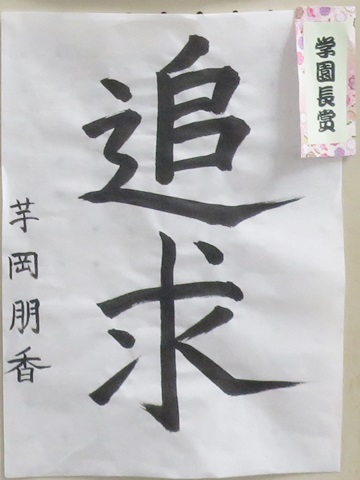 学園長賞
追求
芋岡朋香